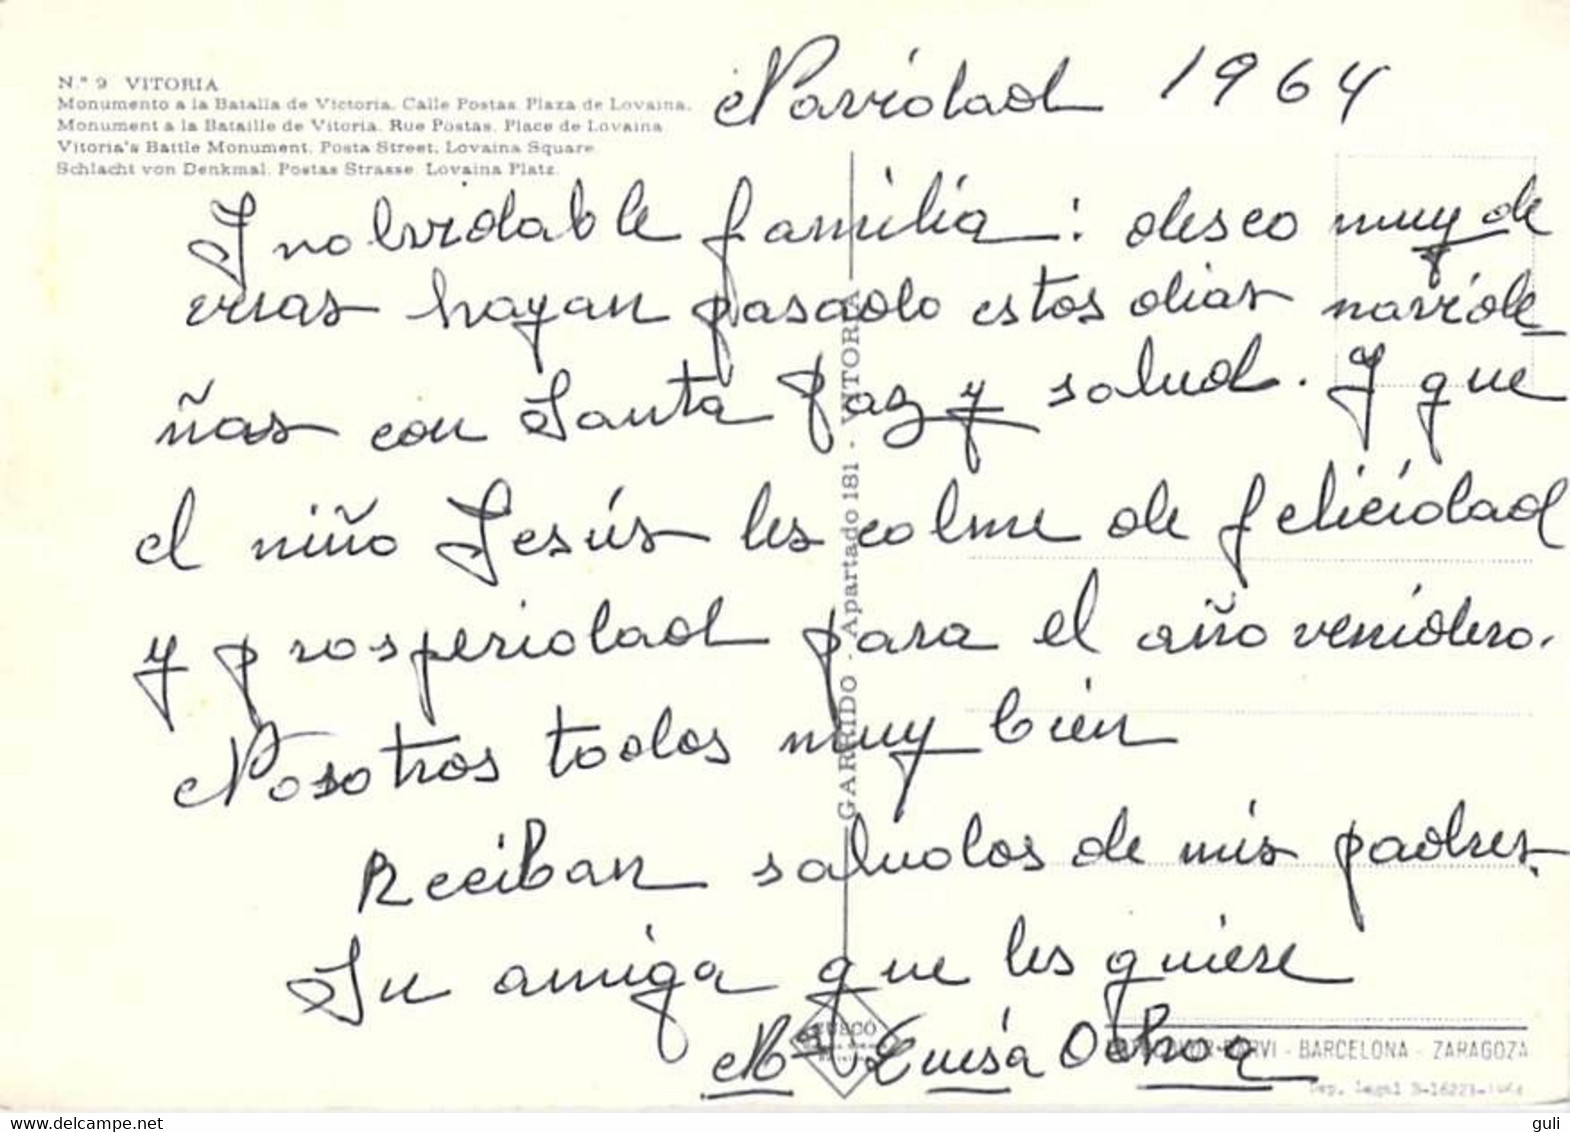 N.º 9 VITORIA
Monumento a la Batalla de Victoria. Calle Postas. Plaza de Lovaina.
Monument a la Bataille de Vitoria. Rue Postas. Place de Lovaina.
Vitoria's Battle Monument. Posta Street. Lovaina Square.
Schlacht von Denkmal. Postas Strasse. Lovaina Platz.
Navidad 1964
Inolvidable familia: deseo muy de
veras hayan pasado estos dias navide
ñas con Santa Paz y salud. Y que
el niño Jesús les colme de felicidad
y prosperidad para el año venidero.
Nosotros todos muy bien
Reciban saludos de mis padres.
Su amiga que les quiere
Mª Luisa Ochoa
GARRIDO - Apartado 181 - VITORIA
BARCELONA - ZARAGOZA
Dep. Legal
guli